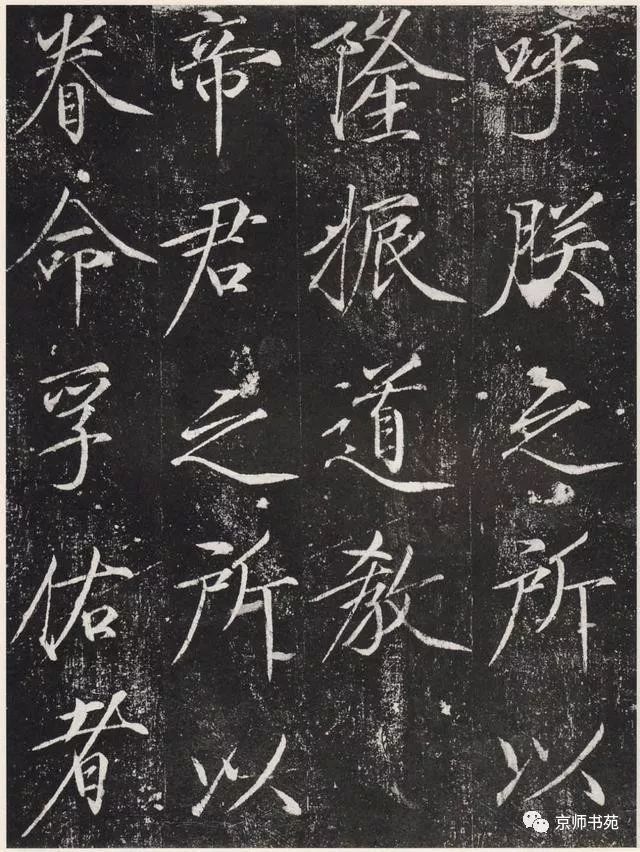 呼朕之所以
隆振道教
帝君之所以
眷命孚佑者
京师书苑